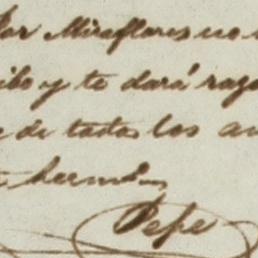 Por Miraflores no
ibo y te dará razo
de todos los
herm
Pepe